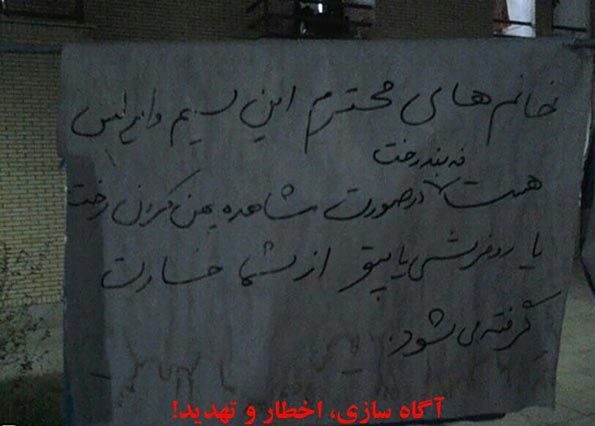 خانم های محترم این سیم وایرلس
نه بند رخت
هست در صورت مشاهده پهن کردن رخت
یا روفرشی یا پتو از شما خسارت
گرفته می شود.
آگاه سازی، اخطار و تهدید!